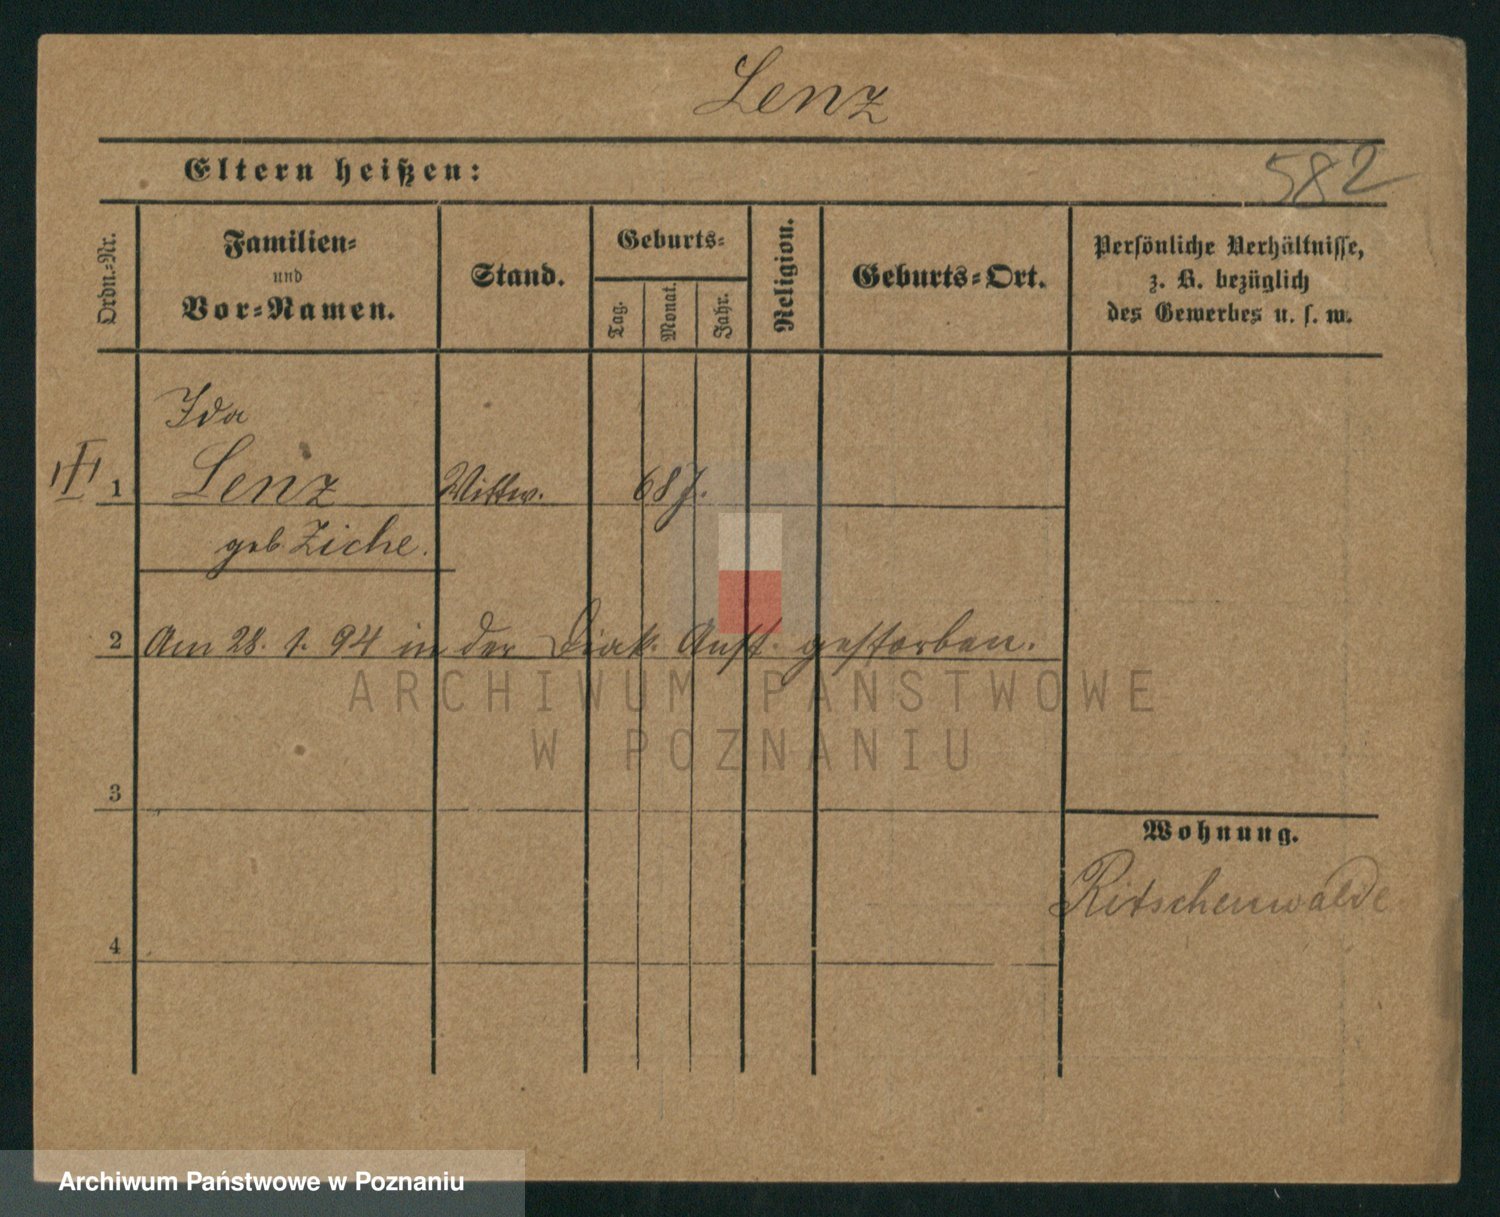 Lenz
Eltern heißen:
582
Ordn.-Nr.
Familien-
und
Vor-Namen.
Stand.
Geburts-
Tag.
Monat.
Jahr.
Religion.
Geburts-Ort.
Persönliche Verhältnisse,
z. B. bezüglich
des Gewerbes u. s. w.
Ida
1 Lenz Wittw. 68 J.
geb. Ziche.
2 Am 28. 1. 94 in der Diak. Anst. gestorben.
ARCHIWUM PAŃSTWOWE
W POZNANIU
3
Wohnung.
Ritschenwalde
4
Archiwum Państwowe w Poznaniu